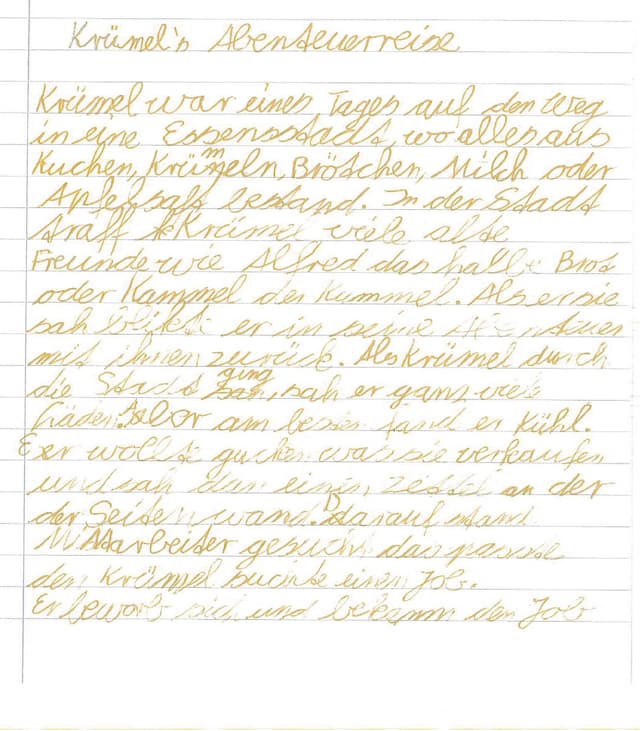 Krümel's Abenteuerreise
Krümel war eines Tages auf dem Weg
in eine Essensstadt, wo alles aus
Kuchen, Krümeln, Brötchen, Milch oder
Apfelsaft bestand. In der Stadt
traff Krümel viele alte
Freunde wie Alfred das halbe Brot
oder Kammel der Kümmel. Als er sie
sah blikte er in seine Abenteuer
mit ihnen zurück. Als Krümel durch
die Stadt ging, sah er ganz viele
Läden. Aber am besten fand er Kühl.
Er wollte gucken was sie verkaufen
und sah dan einen Zettel an der
der Seitenwand. Darauf stand
Mitarbeiter gesucht das passte
den Krümel suchte einen Job.
Er bewarb sich und bekamm den Job